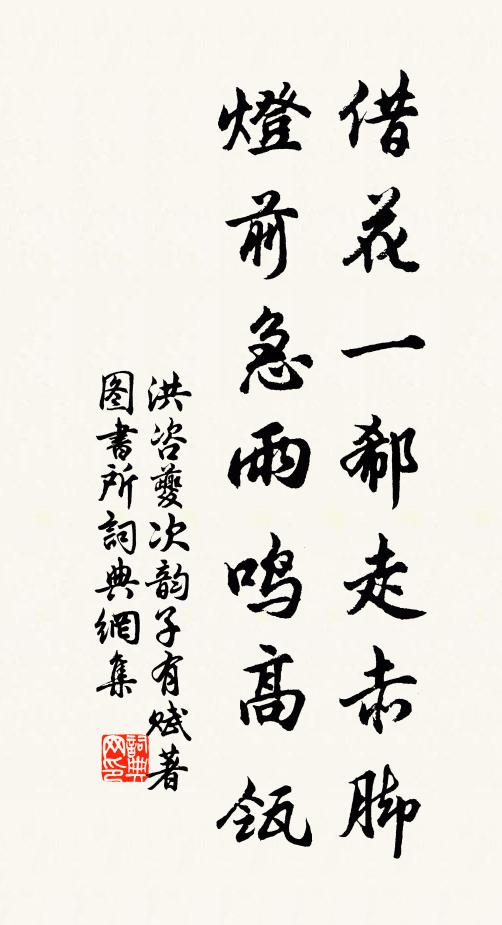 借花一郄走赤脚
燈前急雨鳴高瓴
洪咨夔次韵子有賦著
图書所詞典網集
詞典
网印